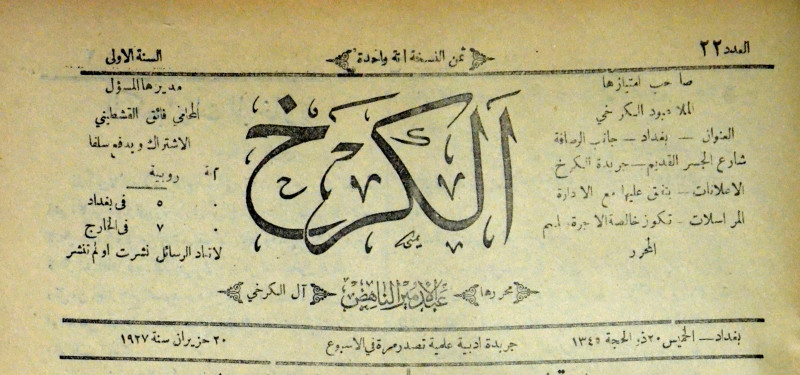 العدد ٢٢
ثمن النسخة آنة واحدة
السنة الاولى
صاحب امتيازها
الملا عبود الكرخي
العنوان — بغداد — جانب الرصافة
شارع الجسر القديم — جريدة الكرخ
الاعلانات — يتفق عليها مع الادارة
المراسلات — تكون خالصة الاجرة باسم
المحرر
الكرخ
مديرها المسؤل
المحامي فائق القشطيني
الاشتراك ويدفع سلفا
آنة روبية
٠ ٥ في بغداد
٠ ٧ في الخارج
لاتعاد الرسائل نشرت اولم تنشر
محررها عبد الامير الناهض آل الكرخي
بغداد — الخميس ٢٠ ذو الحجة ١٣٤٥
جريدة ادبية علمية تصدر مرة في الاسبوع
٢٠ حزيران سنة ١٩٢٧